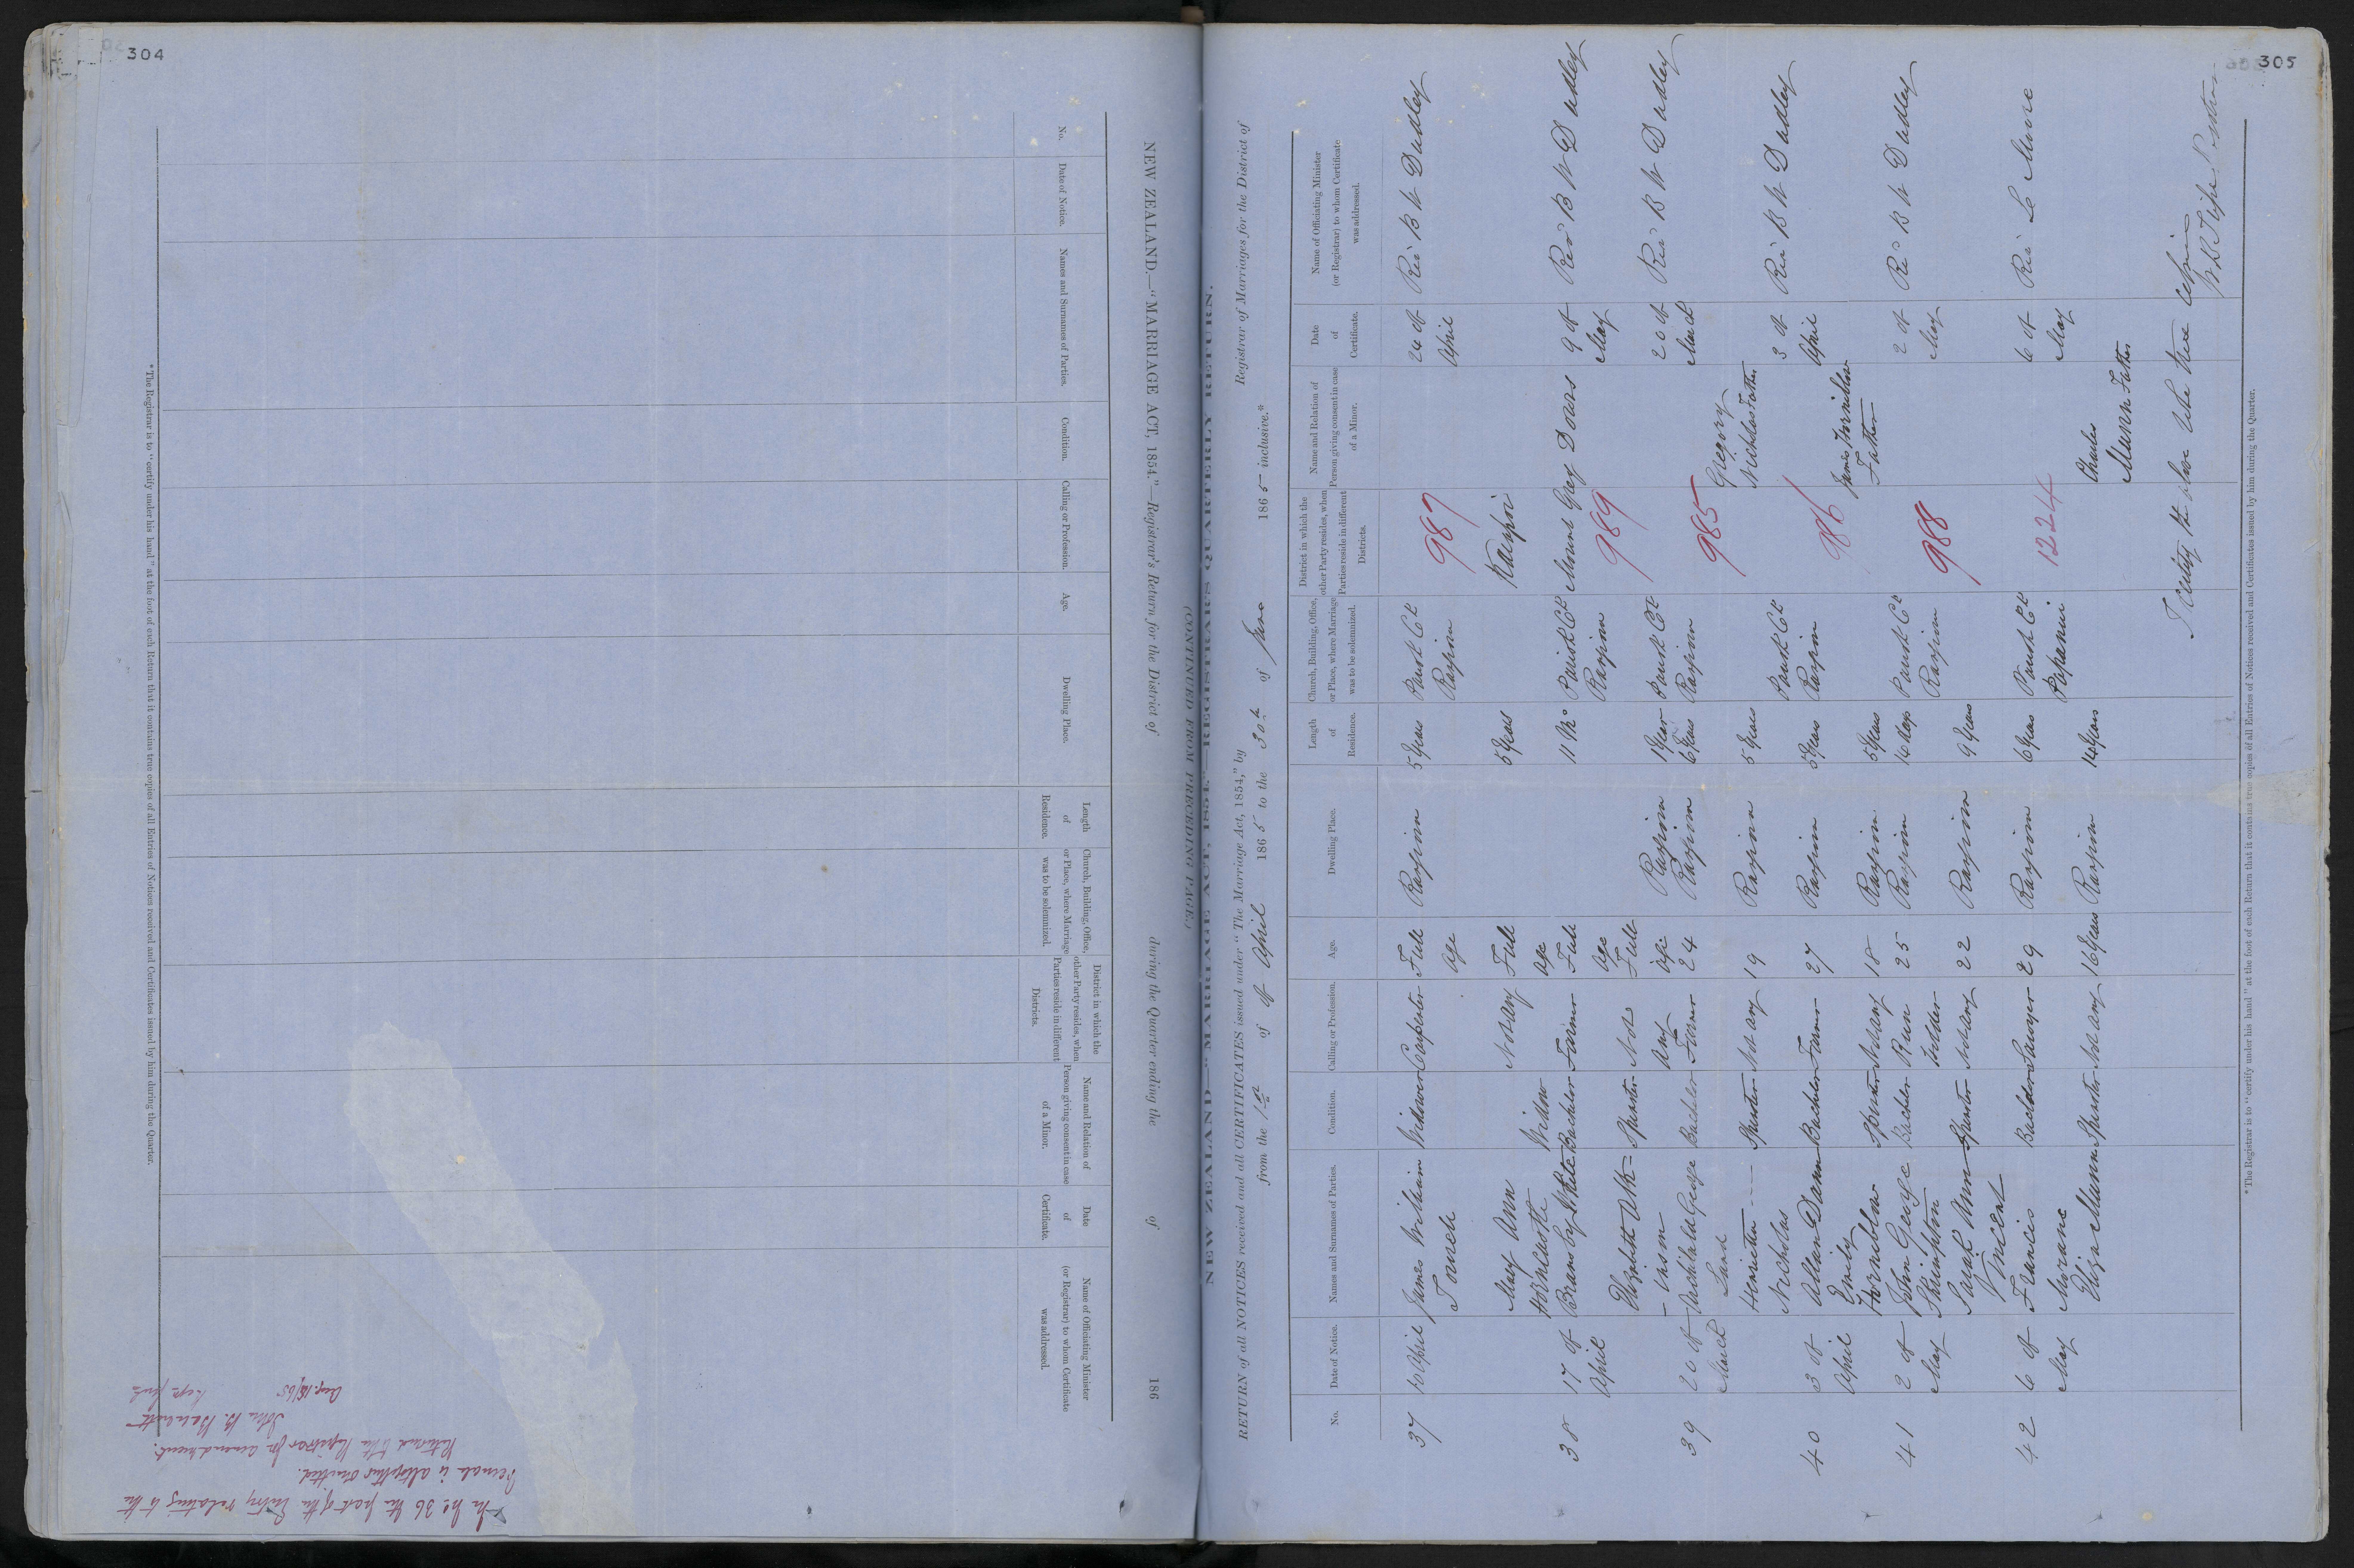 304
* The Registrar is to "certify under his hand" at the foot of each Return that it contains true copies of all Entries of Notices received and Certificates issued by him during the Quarter.
NEW ZEALAND.—"MARRIAGE ACT, 1854."—Registrar's Return for the District of during the Quarter ending the of 186
No.
Date of Notice.
Names and Surnames of Parties.
Condition.
Calling or Profession.
Age.
Dwelling Place.
Length of Residence.
Church, Building, Office, or Place, where Marriage was to be solemnized.
District in which the other Party resides, when Parties reside in different Districts.
Name and Relation of Person giving consent in case of a Minor.
Date of Certificate.
Name of Officiating Minister (or Registrar) to whom Certificate was addressed.
In No 36 the part of the Entry relating to the
Female is altogether omitted.
Returned to the Registrar for amendment.
John B. Bennett
Aug. 18/65
305
(CONTINUED FROM PRECEDING PAGE.)
NEW ZEALAND—"MARRIAGE ACT, 1854."—REGISTRAR'S QUARTERLY RETURN.
RETURN of all NOTICES received and all CERTIFICATES issued under "The Marriage Act, 1854," by Registrar of Marriages for the District of
from the 1st of April 1865 to the 30th of June 1865 inclusive.*
No.
Date of Notice.
Names and Surnames of Parties.
Condition.
Calling or Profession.
Age.
Dwelling Place.
Length of Residence.
Church, Building, Office, or Place, where Marriage was to be solemnized.
District in which the other Party resides, when Parties reside in different Districts.
Name and Relation of Person giving consent in case of a Minor.
Date of Certificate.
Name of Officiating Minister (or Registrar) to whom Certificate was addressed.
37 April James William Widower Carpenter Full age 5 Years 987 24 of April Rev B W Dudley
Mary Ann Horncastle Widow Not any Full age 5 Years Kaiapoi
38 17 of April Bransby White Bachelor Farmer Full age 11 Mo Mount Grey Downs 989 9 of May Rev B W Dudley
Elizabeth Spinster Not any Full age 1 Year
39 20 of March Archibald George Bachelor Farmer 24 6 Years 985 20 of March Rev B W Dudley
Henrietta Nicholas Spinster Not any 19 5 Years Gregory Nicholas Father
40 3 of April Allan Bachelor Farmer 27 5 Years 986 3 of April Rev B W Dudley
Emily Hornblow Spinster Not any 18 5 Years James Hornblow Father
41 2 of May John George Shrimpton Bachelor Run holder 25 16 days 988 2 of May Rev B W Dudley
Sarah Ann Vincent Spinster Not any 22 9 Years
42 6 of May Francis Morane Bachelor Sawyer 29 6 Years 1224 6 of May Rev
Eliza Munn Spinster Not any 16 Years 14 Years Charles Munn Father
I Certify the above to be true copies
* The Registrar is to "certify under his hand" at the foot of each Return that it contains true copies of all Entries of Notices received and Certificates issued by him during the Quarter.